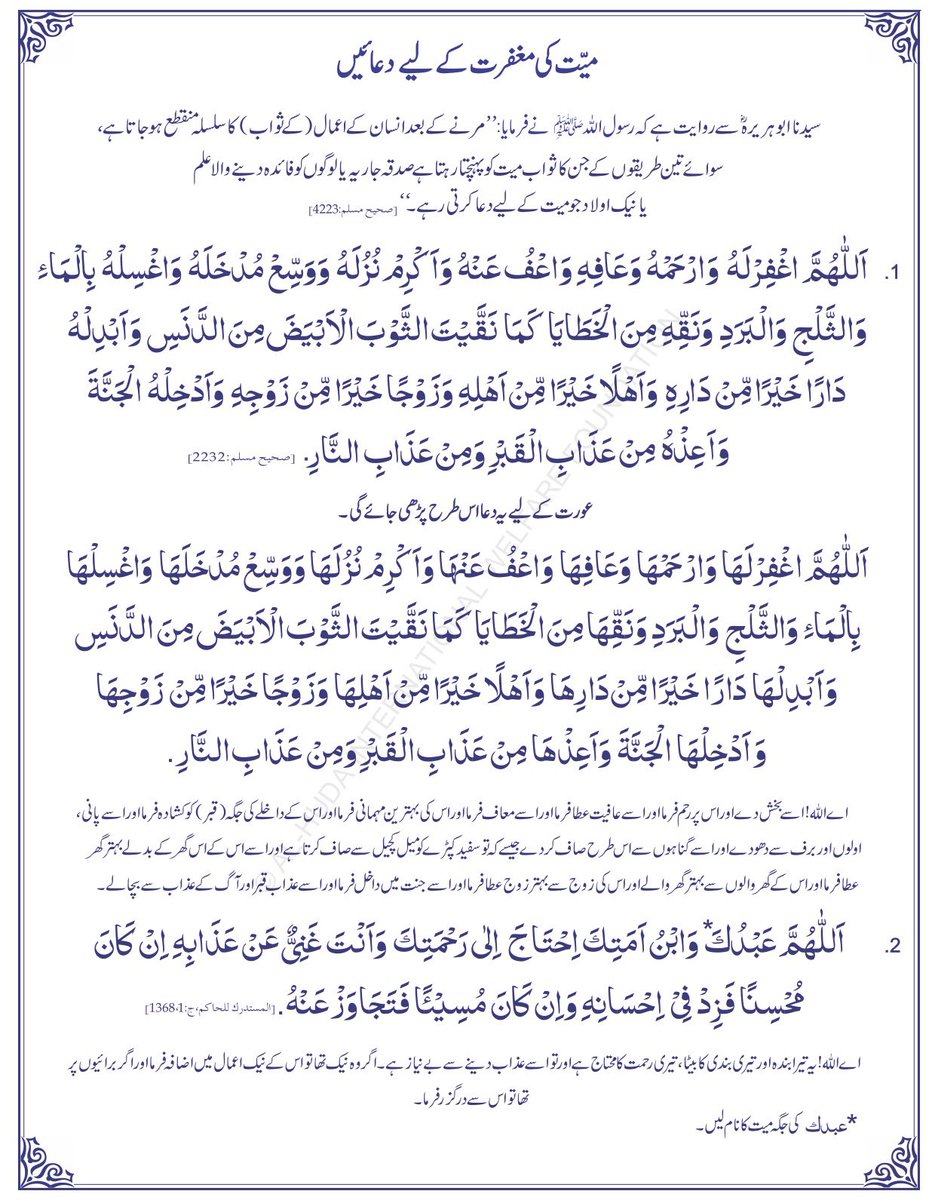 میّت کی مغفرت کے لیے دعائیں
سیدنا ابو ہریرہؓ سے روایت ہے کہ رسول اللہ ﷺ نے فرمایا: ’’مرنے کے بعد انسان کے اعمال (کے ثواب) کا سلسلہ منقطع ہو جاتا ہے،
سوائے تین طریقوں کے جن کا ثواب میت کو پہنچتا رہتا ہے صدقہ جاریہ یا لوگوں کو فائدہ دینے والا علم
یا نیک اولاد جو میت کے لیے دعا کرتی رہے۔‘‘ [صحیح مسلم:4223]
1. اَللّٰهُمَّ اغْفِرْلَهُ وَارْحَمْهُ وَعَافِهِ وَاعْفُ عَنْهُ وَاَكْرِمْ نُزُلَهُ وَوَسِّعْ مُدْخَلَهُ وَاغْسِلْهُ بِالْمَاءِ
وَالثَّلْجِ وَالْبَرَدِ وَنَقِّهِ مِنَ الْخَطَايَا كَمَا نَقَّيْتَ الثَّوْبَ الْاَبْيَضَ مِنَ الدَّنَسِ وَاَبْدِلْهُ
دَارًا خَيْرًا مِّنْ دَارِهِ وَاَهْلًا خَيْرًا مِّنْ اَهْلِهِ وَزَوْجًا خَيْرًا مِّنْ زَوْجِهِ وَاَدْخِلْهُ الْجَنَّةَ
وَاَعِذْهُ مِنْ عَذَابِ الْقَبْرِ وَمِنْ عَذَابِ النَّارِ. [صحیح مسلم:2232]
عورت کے لیے یہ دعا اس طرح پڑھی جائے گی۔
اَللّٰهُمَّ اغْفِرْلَهَا وَارْحَمْهَا وَعَافِهَا وَاعْفُ عَنْهَا وَاَكْرِمْ نُزُلَهَا وَوَسِّعْ مُدْخَلَهَا وَاغْسِلْهَا
بِالْمَاءِ وَالثَّلْجِ وَالْبَرَدِ وَنَقِّهَا مِنَ الْخَطَايَا كَمَا نَقَّيْتَ الثَّوْبَ الْاَبْيَضَ مِنَ الدَّنَسِ
وَاَبْدِلْهَا دَارًا خَيْرًا مِّنْ دَارِهَا وَاَهْلًا خَيْرًا مِّنْ اَهْلِهَا وَزَوْجًا خَيْرًا مِّنْ زَوْجِهَا
وَاَدْخِلْهَا الْجَنَّةَ وَاَعِذْهَا مِنْ عَذَابِ الْقَبْرِ وَمِنْ عَذَابِ النَّارِ.
اے اللہ! اسے بخش دے اور اس پر رحم فرما اور اسے عافیت عطا فرما اور اسے معاف فرما اور اس کی بہترین مہمانی فرما اور اس کے داخلے کی جگہ (قبر) کو کشادہ فرما اور اسے پانی،
اولوں اور برف سے دھو دے اور اسے گناہوں سے اس طرح صاف کر دے جیسے کہ تو سفید کپڑے کو میل کچیل سے صاف کرتا ہے اور اسے اس کے اس گھر کے بدلے بہتر گھر
عطا فرما اور اس کے گھر والوں سے بہتر گھر والے اور اس کی زوج سے بہتر زوج عطا فرما اور اسے جنت میں داخل فرما اور اسے عذاب قبر اور آگ کے عذاب سے بچا لے۔
2. اَللّٰهُمَّ عَبْدُكَ* وَابْنُ اَمَتِكَ اِحْتَاجَ اِلٰى رَحْمَتِكَ وَاَنْتَ غَنِيٌّ عَنْ عَذَابِهِ اِنْ كَانَ
مُحْسِنًا فَزِدْ فِيْ اِحْسَانِهِ وَاِنْ كَانَ مُسِيْئًا فَتَجَاوَزْ عَنْهُ. [المستدرك للحاكم،ج:1،1368]
اے اللہ! یہ تیرا بندہ اور تیری بندی کا بیٹا، تیری رحمت کا محتاج ہے اور تو اسے عذاب دینے سے بے نیاز ہے۔ اگر وہ نیک تھا تو اس کے نیک اعمال میں اضافہ فرما اور اگر برائیوں پر
تھا تو اس سے درگزر فرما۔
*عبدك کی جگہ میت کا نام لیں۔
© AL-HUDA INTERNATIONAL WELFARE FOUNDATION